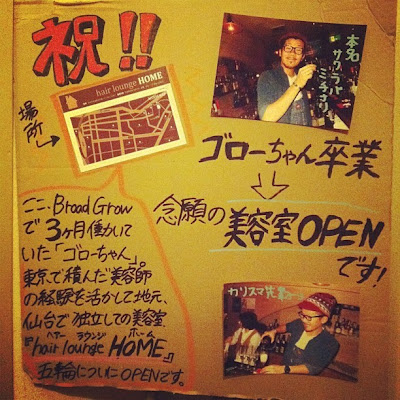 祝!!
本名
サクラバ
ミチナリ
hair lounge HOME
場所
ゴローちゃん卒業
念願の美容室OPEN
です!
ここBroad Grow
で3ヶ月働いて
いた「ゴローちゃん」。
東京で積んだ美容師
の経験を活かして地元、
仙台で独立しての美容室
ヘアー ラウンジ ホーム
『hair lounge HOME』
五輪についにOPENです。
カリスマ